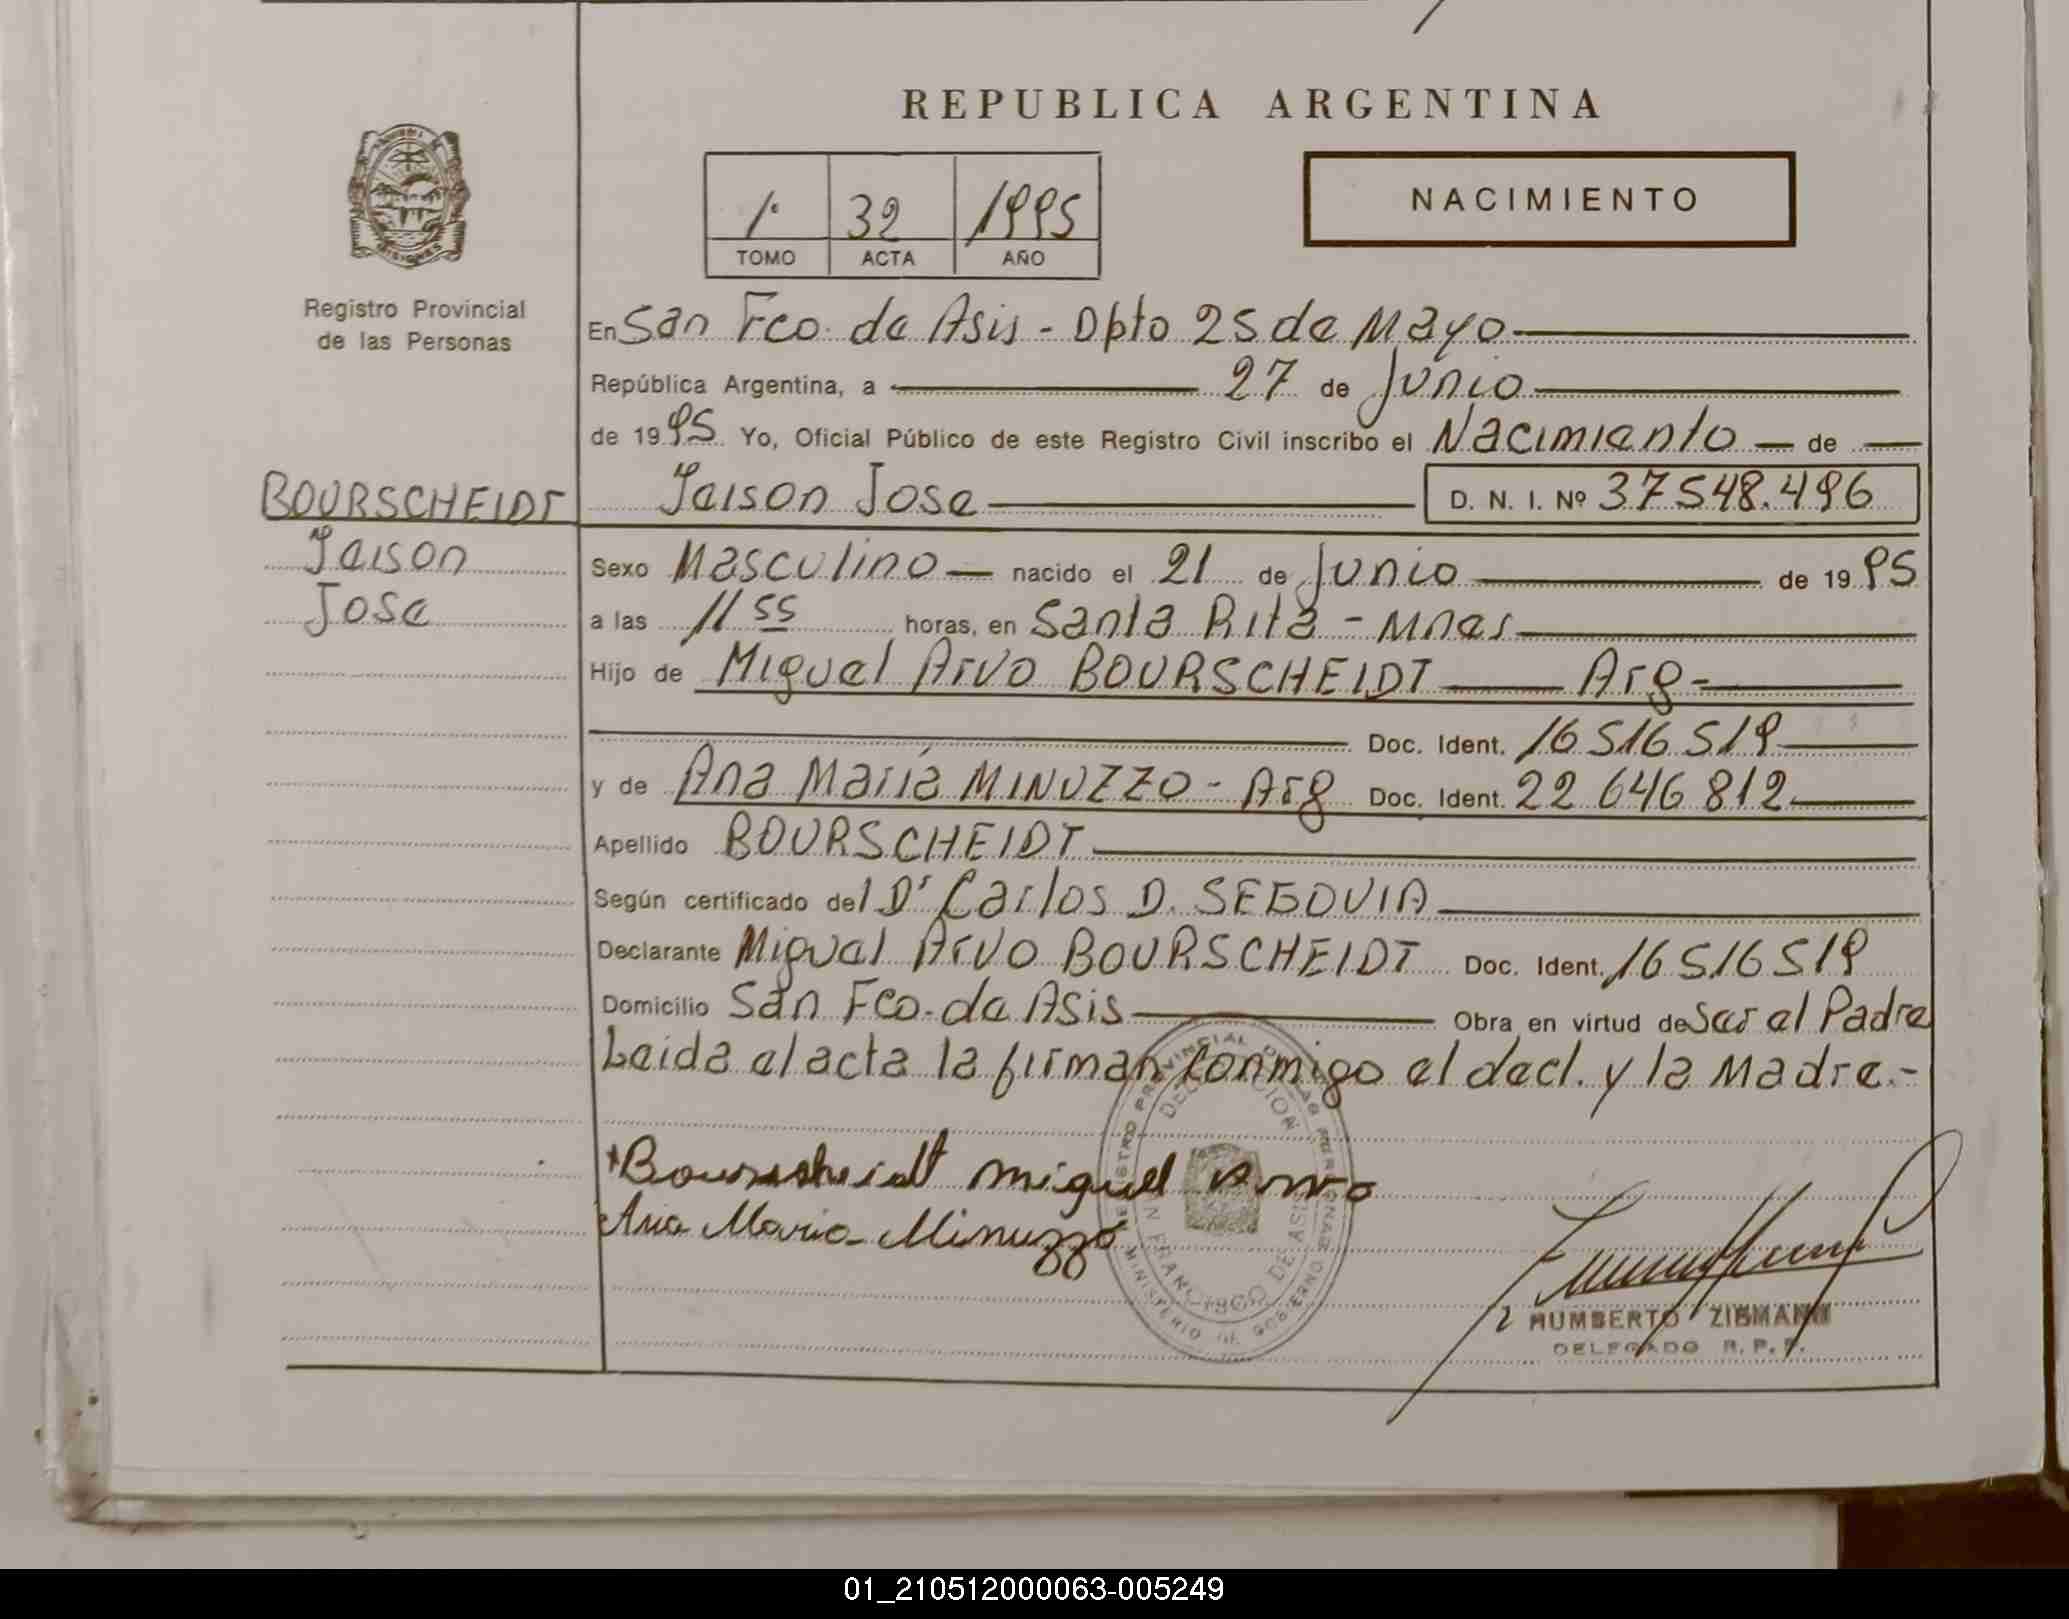 REPUBLICA ARGENTINA
1º 32 1995
TOMO ACTA AÑO
NACIMIENTO
MISIONES
Registro Provincial
de las Personas
En San Fco. de Asis - Dpto 25 de Mayo
República Argentina, a 27 de Junio
de 1995 Yo, Oficial Público de este Registro Civil inscribo el Nacimiento de
BOURSCHEIDT
Jeison
Jose
Jeison Jose D. N. I. Nº 37548.496
Sexo Masculino nacido el 21 de Junio de 1995
a las 11 55 horas, en Santa Rita - Mnes
Hijo de Miguel Arvo BOURSCHEIDT Arg-
Doc. Ident. 16516519
y de Ana María MINUZZO - Arg Doc. Ident. 22 646 812
Apellido BOURSCHEIDT
Según certificado del Dr Carlos D. SEGOVIA
Declarante Miguel Arvo BOURSCHEIDT Doc. Ident. 16516519
Domicilio San Fco. de Asis Obra en virtud de Ser el Padre
Leida el acta la firman conmigo el decl. y la Madre.-
Bourscheidt Miguel Arvo
Ana Maria Minuzzo
REGISTRO PROVINCIAL DE LAS PERSONAS
DELEGACION
SAN FRANCISCO DE ASIS
MINISTERIO DE GOBIERNO
HUMBERTO ZIEMANN
DELEGADO R. P. P.
01_210512000063-005249